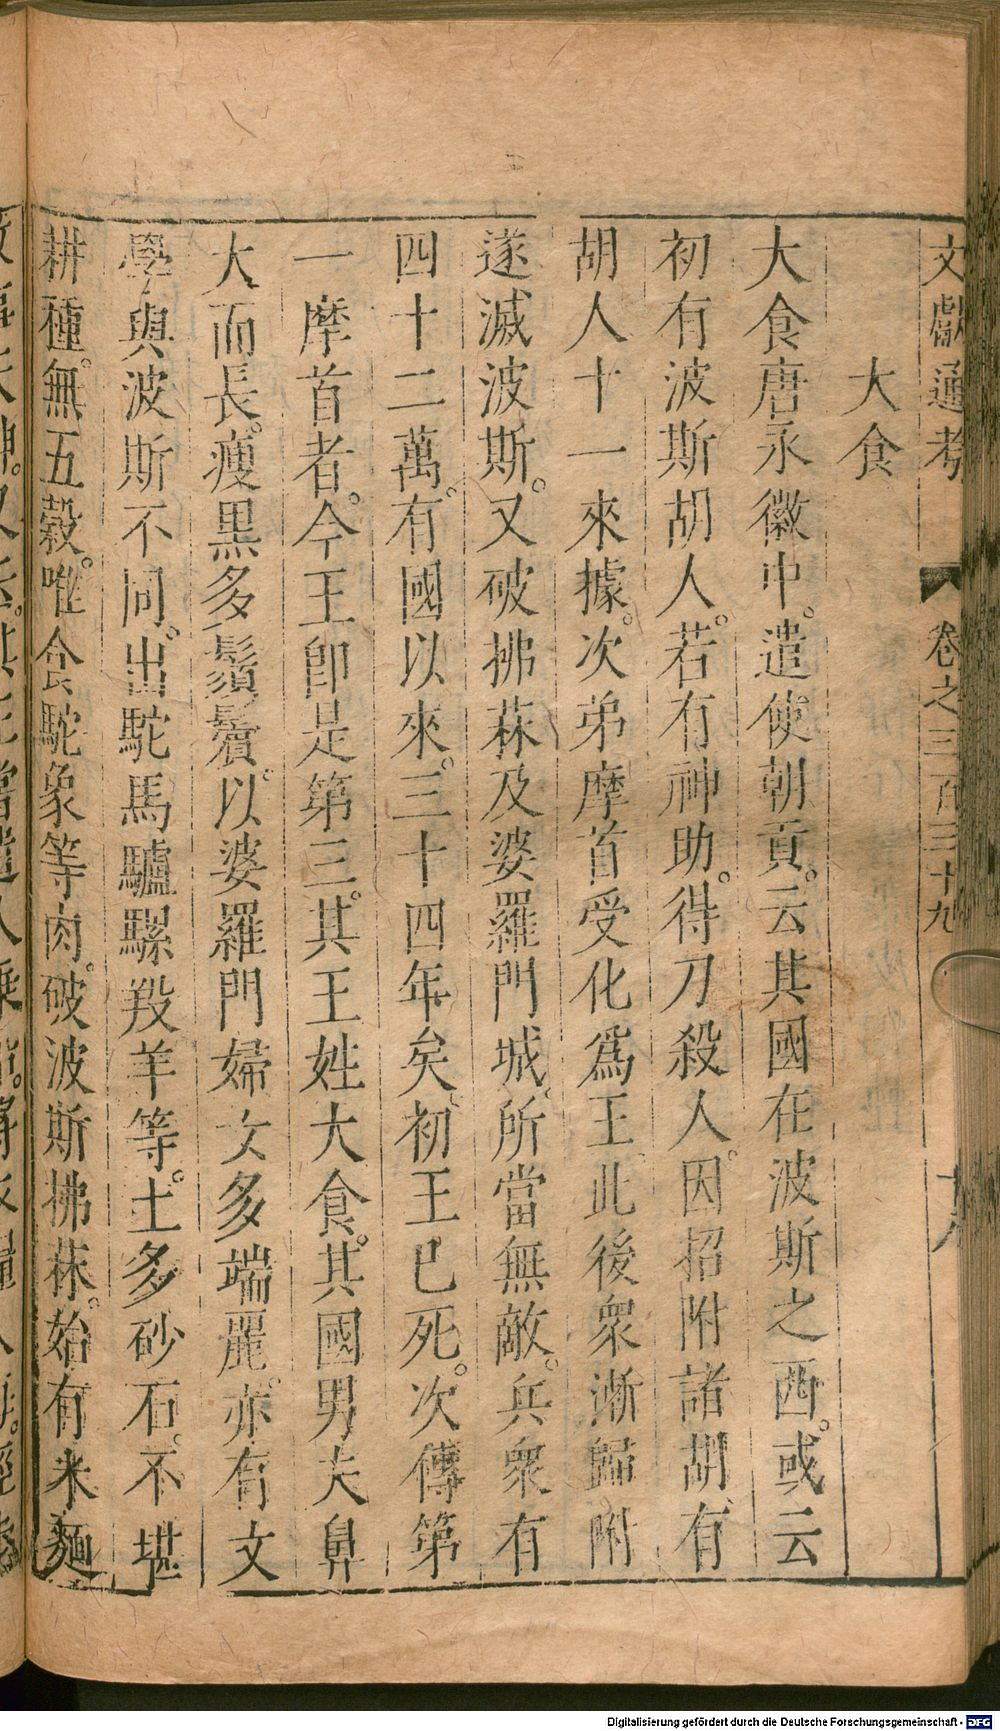 文獻通考 卷之三百三十九 十八
大食
大食唐永徽中。遣使朝貢。云其國在波斯之西。或云
初有波斯胡人。若有神助。得刀殺人。因招附諸胡有
胡人十一來據。次弟摩首受化爲王。此後衆漸歸附
遂滅波斯。又破拂菻及婆羅門城。所當無敵。兵衆有
四十二萬。有國以來。三十四年矣。初王已死。次傳第
一摩首者。今王卽是第三。其王姓大食。其國男夫鼻
大而長。瘦黑多鬚鬢。以婆羅門婦女多端麗。亦有文
學與波斯不同。出駝馬驢騾羖羊等。土多砂石。不堪
耕種。無五穀。唯食駝象等肉。破波斯拂菻。始有米麵
Digitalisierung gefördert durch die Deutsche Forschungsgemeinschaft - DFG